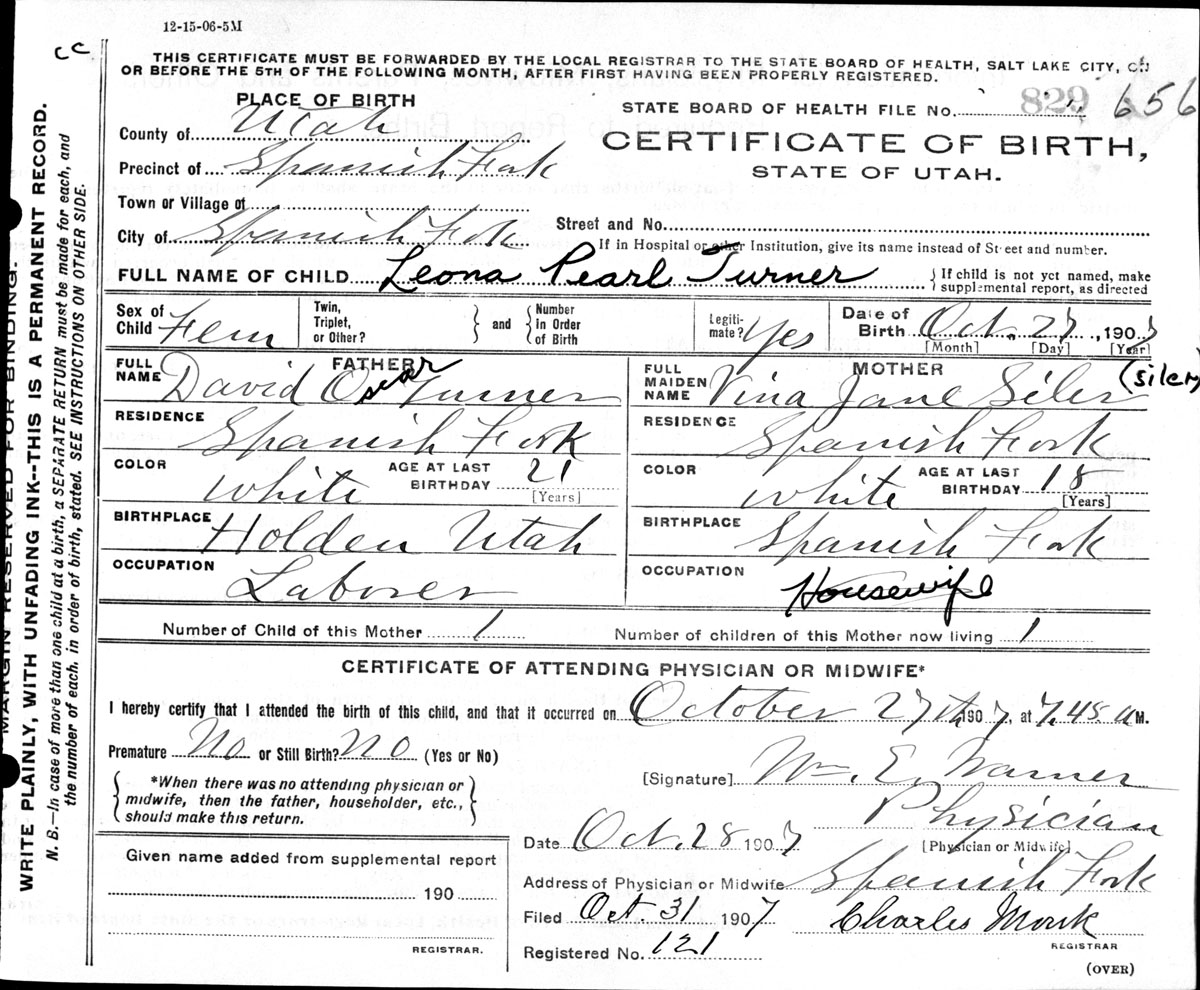 12-15-06-5M
cc
THIS CERTIFICATE MUST BE FORWARDED BY THE LOCAL REGISTRAR TO THE STATE BOARD OF HEALTH, SALT LAKE CITY, ON
OR BEFORE THE 5TH OF THE FOLLOWING MONTH, AFTER FIRST HAVING BEEN PROPERLY REGISTERED.
PLACE OF BIRTH
STATE BOARD OF HEALTH FILE No. 829 656
County of Utah
CERTIFICATE OF BIRTH,
STATE OF UTAH.
Precinct of Spanish Fork
Town or Village of
Street and No.
City of Spanish Fork
If in Hospital or other Institution, give its name instead of Street and number.
FULL NAME OF CHILD Leona Pearl Turner
If child is not yet named, make
supplemental report, as directed
Sex of Child Fem
Twin, Triplet, or Other? and Number in Order of Birth
Legiti-mate? Yes
Date of Birth Oct. 27, 1907
[Month] [Day] [Year]
FATHER
FULL NAME David Oscar Turner
MOTHER
FULL MAIDEN NAME Vina Jane Siler (siler)
RESIDENCE Spanish Fork
RESIDENCE Spanish Fork
COLOR white AGE AT LAST BIRTHDAY 21 [Years]
COLOR white AGE AT LAST BIRTHDAY 18 [Years]
BIRTHPLACE Holden Utah
BIRTHPLACE Spanish Fork
OCCUPATION Laborer
OCCUPATION Housewife
Number of Child of this Mother 1
Number of children of this Mother now living 1
CERTIFICATE OF ATTENDING PHYSICIAN OR MIDWIFE*
I hereby certify that I attended the birth of this child, and that it occurred on October 27th 1907, at 7.45 a M.
Premature No or Still Birth? No (Yes or No)
*When there was no attending physician or
midwife, then the father, householder, etc.,
should make this return.
[Signature] Wm. E. Warner
Physician
[Physician or Midwife]
Date Oct. 28 1907
Given name added from supplemental report
190
REGISTRAR.
Address of Physician or Midwife Spanish Fork
Filed Oct. 31 1907 Charles Monk
REGISTRAR
Registered No. 121
(OVER)
MARGIN RESERVED FOR BINDING.
WRITE PLAINLY, WITH UNFADING INK--THIS IS A PERMANENT RECORD.
N. B.—In case of more than one child at a birth, a SEPARATE RETURN must be made for each, and
the number of each, in order of birth, stated. SEE INSTRUCTIONS ON OTHER SIDE.